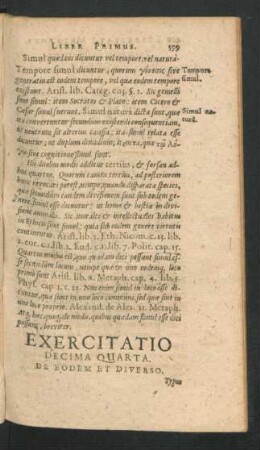 LIBER PRIMUS. 199
Simul quædam dicuntur vel tempore, vel natura.
Tempore simul dicuntur, quorum γένεσις sive
generatio est eodem tempore, vel quæ eodem tempore
existunt. Arist. lib. Categ. cap. §. 1. Sic gemelli
sunt simul: item Socrates & Plato: item Cicero &
Cæsar simul fuerunt. Simul natura dicta sunt, quæ
convertuntur secundum existendi consequentiam,
et neutrum sit alterius causa; ita simul relata esse
dicuntur; ut duplum dimidium,
sive cognitione simul sunt.
Tempore
simul.
Simul na-
tura.
His duobus modis additur tertius, & forsan ad-
huc quartus. Quorum tamen tertius, ad posteriorem
horum revocari potest, nempe quando disparatæ species,
quæ secundum divisionem ex eodem genere sunt
simul esse dicuntur: ut homo & bestia in
animalis. Sic mor ales & intellectuales habitus
in Ethicis sunt simul, quia sub eodem genere virtutis
continentur. Arist. lib. 1. Eth. Nicom. c. 13. lib.
2. cor. c. 1. lib. 2. Eud. c. 1. lib. 7. Polit. cap. 15.
Quartus modus est, quo quædam dici possunt simul es-
se secundum locum, nempe quæ in uno eodemq; loco
primo sunt Arist. lib. 2. Metaph. cap. 4. lib. 5.
Phys. cap 3. t. 22. Non enim simul in loco esse di-
cuntur, quæ sunt in uno loco communi, sed quæ sint in
uno loco proprio. Alexand. de Ales. 11. Metaph.
Atq; hæc quoq; de modis, quibus quædam simul esse dici
possunt, breviter.
EXERCITATIO
DECIMA QUARTA.
DE EODEM ET DIVERSO.